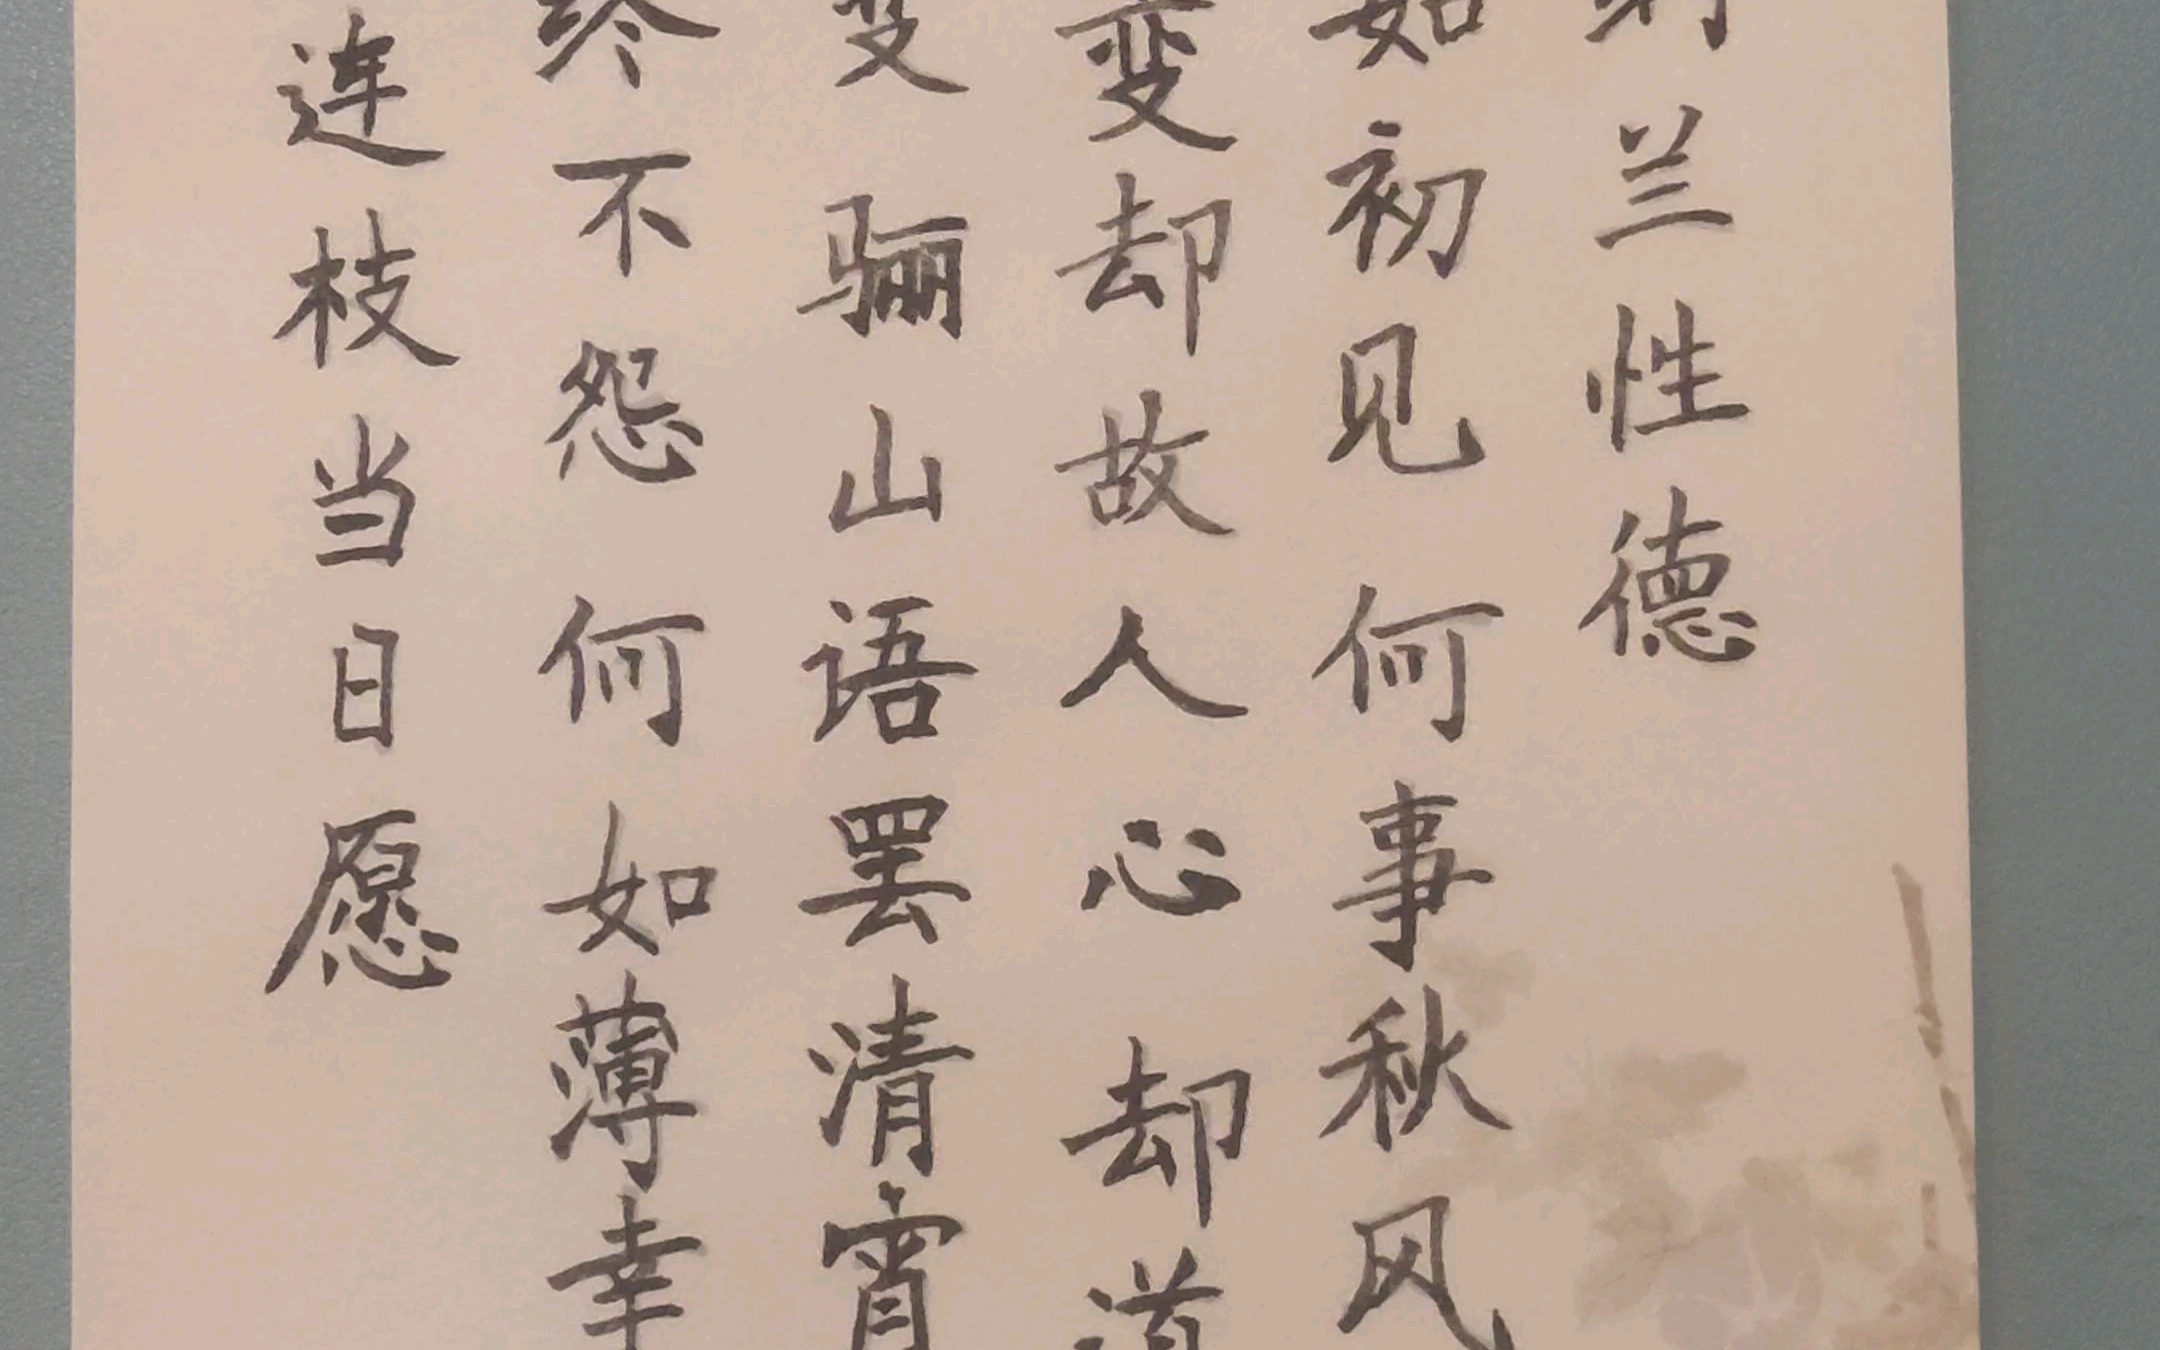 兰性德
如初见何事秋风
变却故人心却道
变骊山语罢清宵
终不怨何如薄幸
连枝当日愿